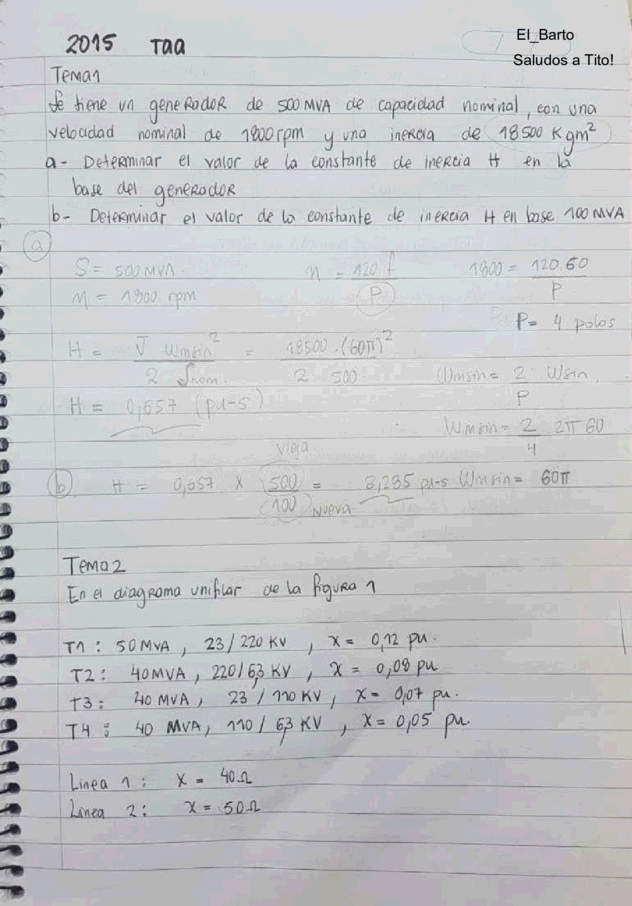 El_Barto
Saludos a Tito!
2015 Taa
Tema1
Se tiene un geneRadoR de 500MVA de capacidad nominal, con una
velocidad nominal de 1800rpm y una inercia de 18500 Kgm²
a- Determinar el valor de la constante de inercia H en la
base del generador
b- Determinar el valor de la constante de inercia H en base 100MVA
a
S = 500MVA
n = 120.f / P
1800 = 120.60 / P
n = 1800 rpm
P = 4 polos
H = J Wmsin² / 2 Snom. = 18500.(60π)² / 2.500
Wmsin = 2 / P Wsin.
H = 0,657 (pu-s)
Wmsin = 2 / 4 2π60
b H = 0,657 x 500 vieja / 100 Nueva = 3,285 pu-s Wmsin = 60π
Tema2
En el diagrama unifilar de la figura 1
T1: 50MVA, 23/220 KV, x = 0,12 pu.
T2: 40MVA, 220/6,3 KV, x = 0,08 pu
T3: 40 MVA, 23/110 KV, x = 0,07 pu.
T4: 40 MVA, 110/6,3 KV, x = 0,05 pu.
Linea 1: x = 40Ω
Linea 2: x = 50Ω